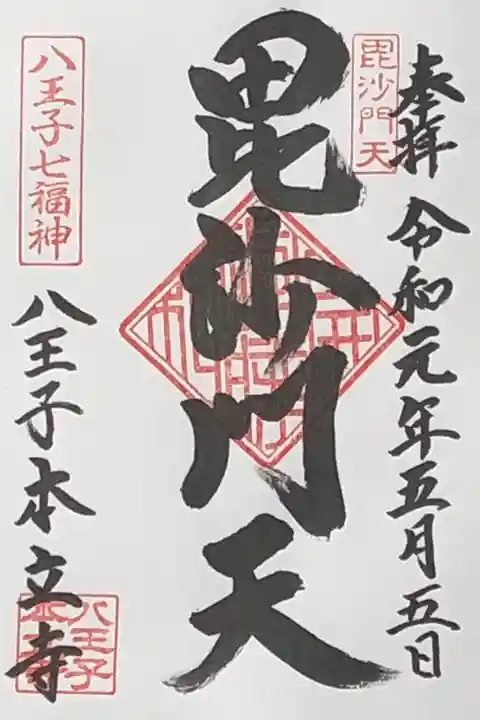 奉拝 令和元年五月五日
毘沙門天
毘沙門天
八王子七福神
八王子本立寺
八王子